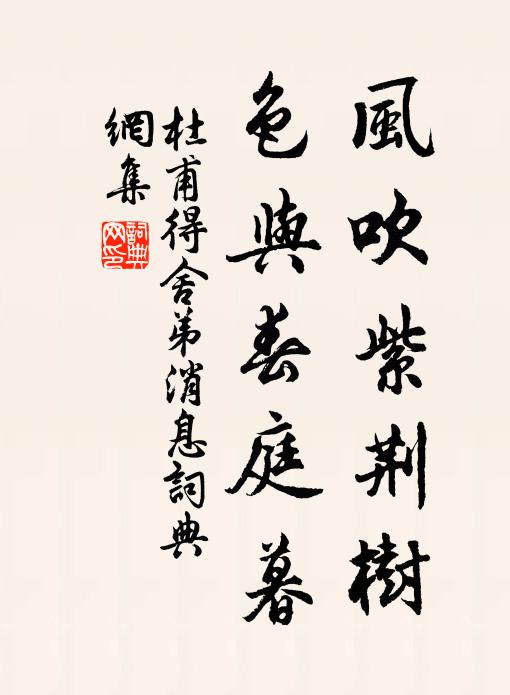 風吹紫荆樹
色與春庭暮
杜甫得舍弟消息詞典
網集
詞典
网印